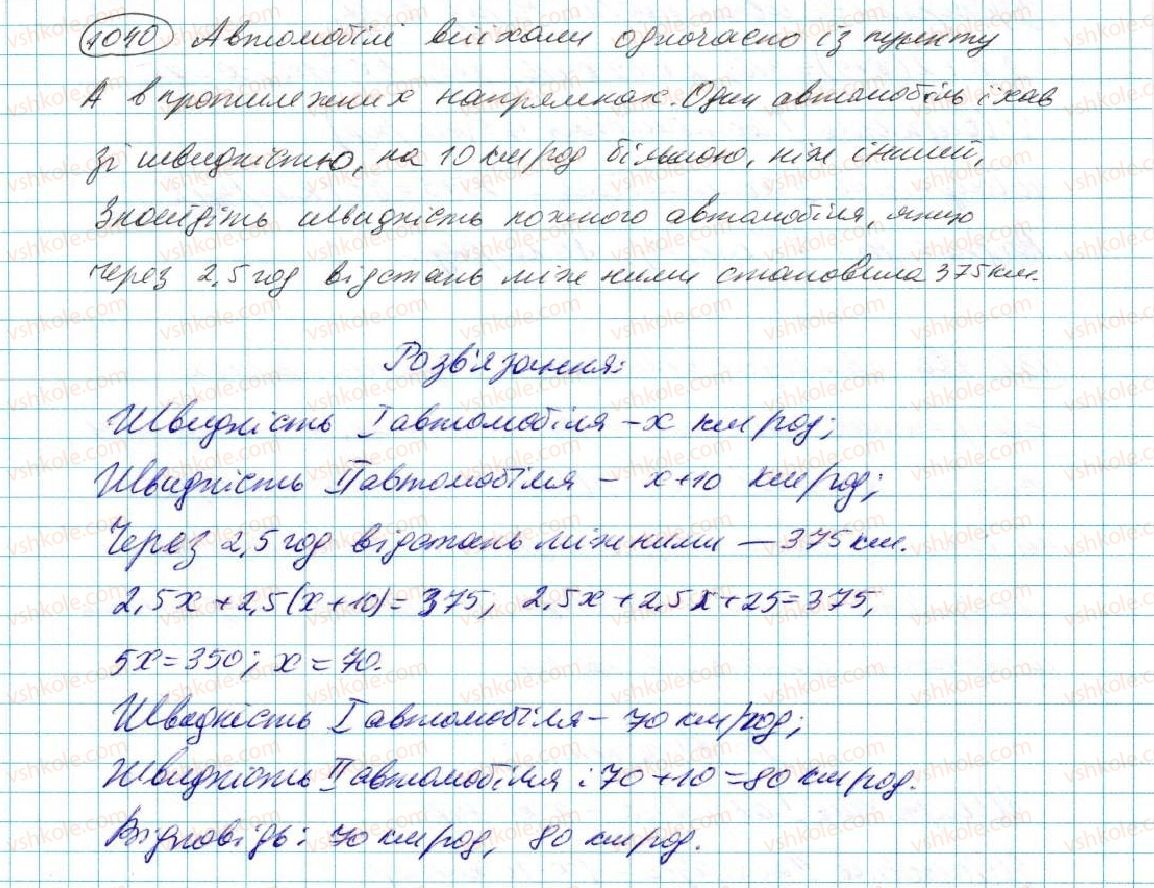 1040 Автомобілі виїхали одночасно із пункту
А в протилежних напрямках. Один автомобіль їхав
зі швидкістю, на 10 км/год більшою, ніж інший,
Знайдіть швидкість кожного автомобіля, якщо
через 2,5 год відстань між ними становила 375 км.
Розв'язання:
Швидкість I автомобіля – x км/год;
Швидкість II автомобіля – x+10 км/год;
Через 2,5 год відстань між ними — 375 км.
2,5x+2,5(x+10)=375; 2,5x+2,5x+25=375;
5x=350; x=70.
Швидкість I автомобіля – 70 км/год;
Швидкість II автомобіля: 70+10=80 км/год.
Відповідь: 70 км/год, 80 км/год.